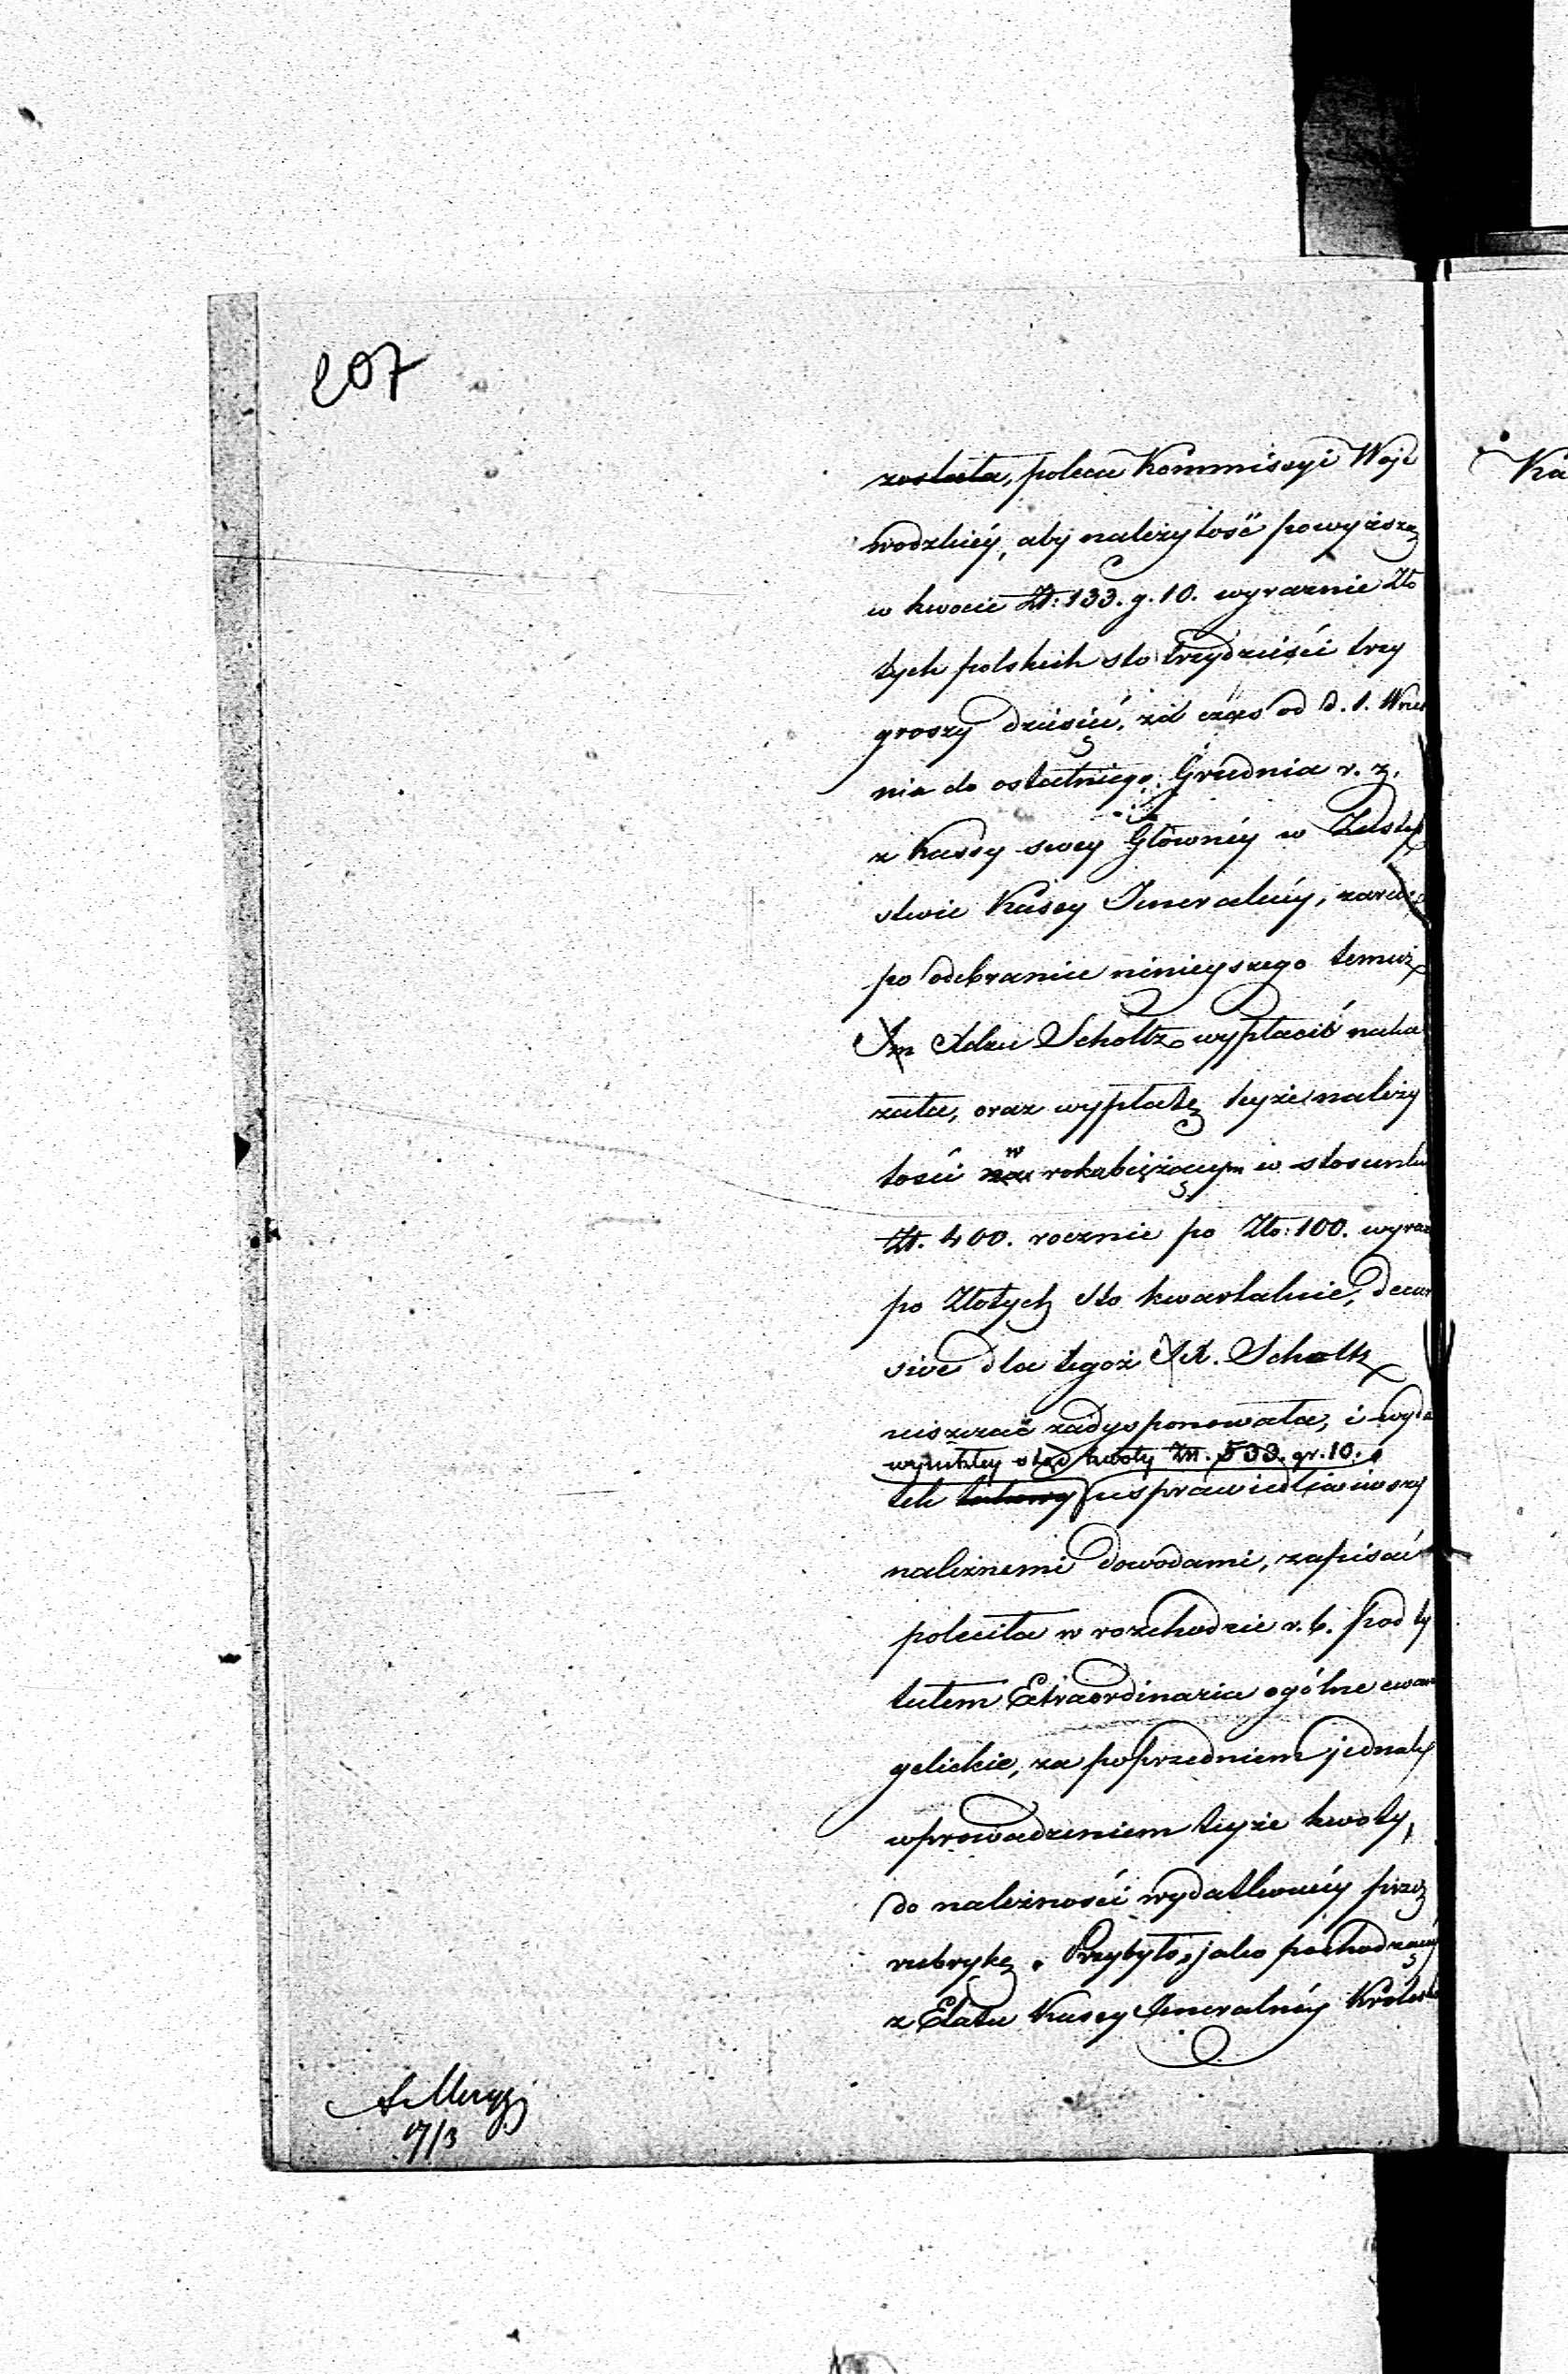 207
została, poleca Kommissyi Woje
wodzkiéy, aby należytość powyższą
w kwocie Zł: 133. g. 10. wyraznie Zło
tych polskich sto trzydzieści trzy
groszy dziesięć, za czas od d. 1. Wrześ
nia do ostatniego Grudnia r. z.
z Kassy swey Główney w Zastęp
stwie Kassy Jeneralnéy, zaraz
po odebraniu ninieyszego temuż
Scholtz wypłacić naka
zała, oraz wypłatę teyże należy
tości w roku bieżącym w stosunku
Zł. 400. rocznie po Zło: 100. wyraz
po Złotych Sto kwartalnie, decur
sive dla tegoż A. Scholtz
uiszczać zadysponowała, i wyda
wynikłey stąd kwoty Zł. 533. gr. 10.
tek usprawiedliwiwszy
należnemi dowodami, zapisać
poleciła w rozchodzie r. b. pod ty
tułem Extraordinaria ogólne ewan
gelickie, za poprzedniem jednak
wprowadzeniem teyże kwoty,
do należności wydatkowéy przez
rubrykę „Przybyło„ jako pochodzącéy
z Etatu Kassy Jeneralnéy Królestw
17/3
Ka